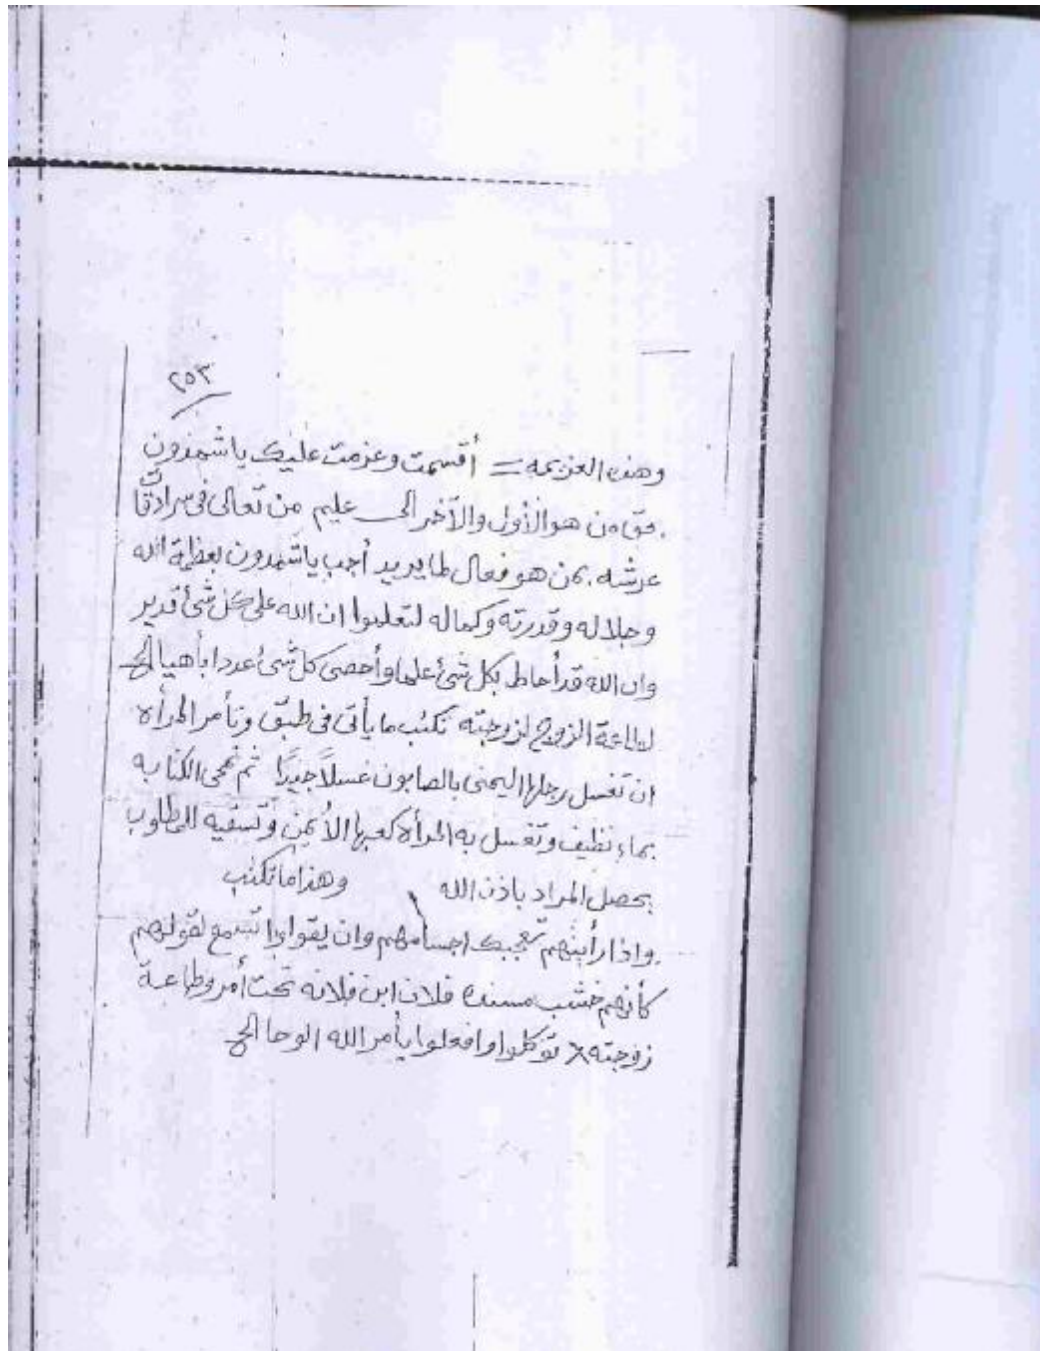 ٢٥٣
وهذه العزيمه = أقسمت وعزمت عليك ياشمذون
بحق من هو الأول والآخر الى عليم من تعالى فى سرادقا
عرشه بمن هو فعال لما يريد أجب ياشمدون بعظمة الله
وجلاله وقدرته وكماله لتعلموا ان الله على كل شئ قدير
وان الله قد أحاط بكل شئ علما وأحصى كل شئ عددا بأهيا الخ
لطاعة الزوج لزوجته تكتب ما يأتى فى طبق وتأمر المرأه
ان تغسل رجلها اليمنى بالصابون غسلاً جيداً ثم تمحى الكتابه
بماء نظيف وتغسل به المرأه كعبها الأيمن وتسقيه للمطلوب
يحصل المراد باذن الله وهذا ما تكتب
واذا رأيتهم تعجبك اجسامهم وان يقولوا تسمع لقولهم
كأنهم خشب مسندة فلان ابن فلانه تحت أمر وطاعة
زوجته توكلوا وافعلوا بأمر الله الوحا الخ